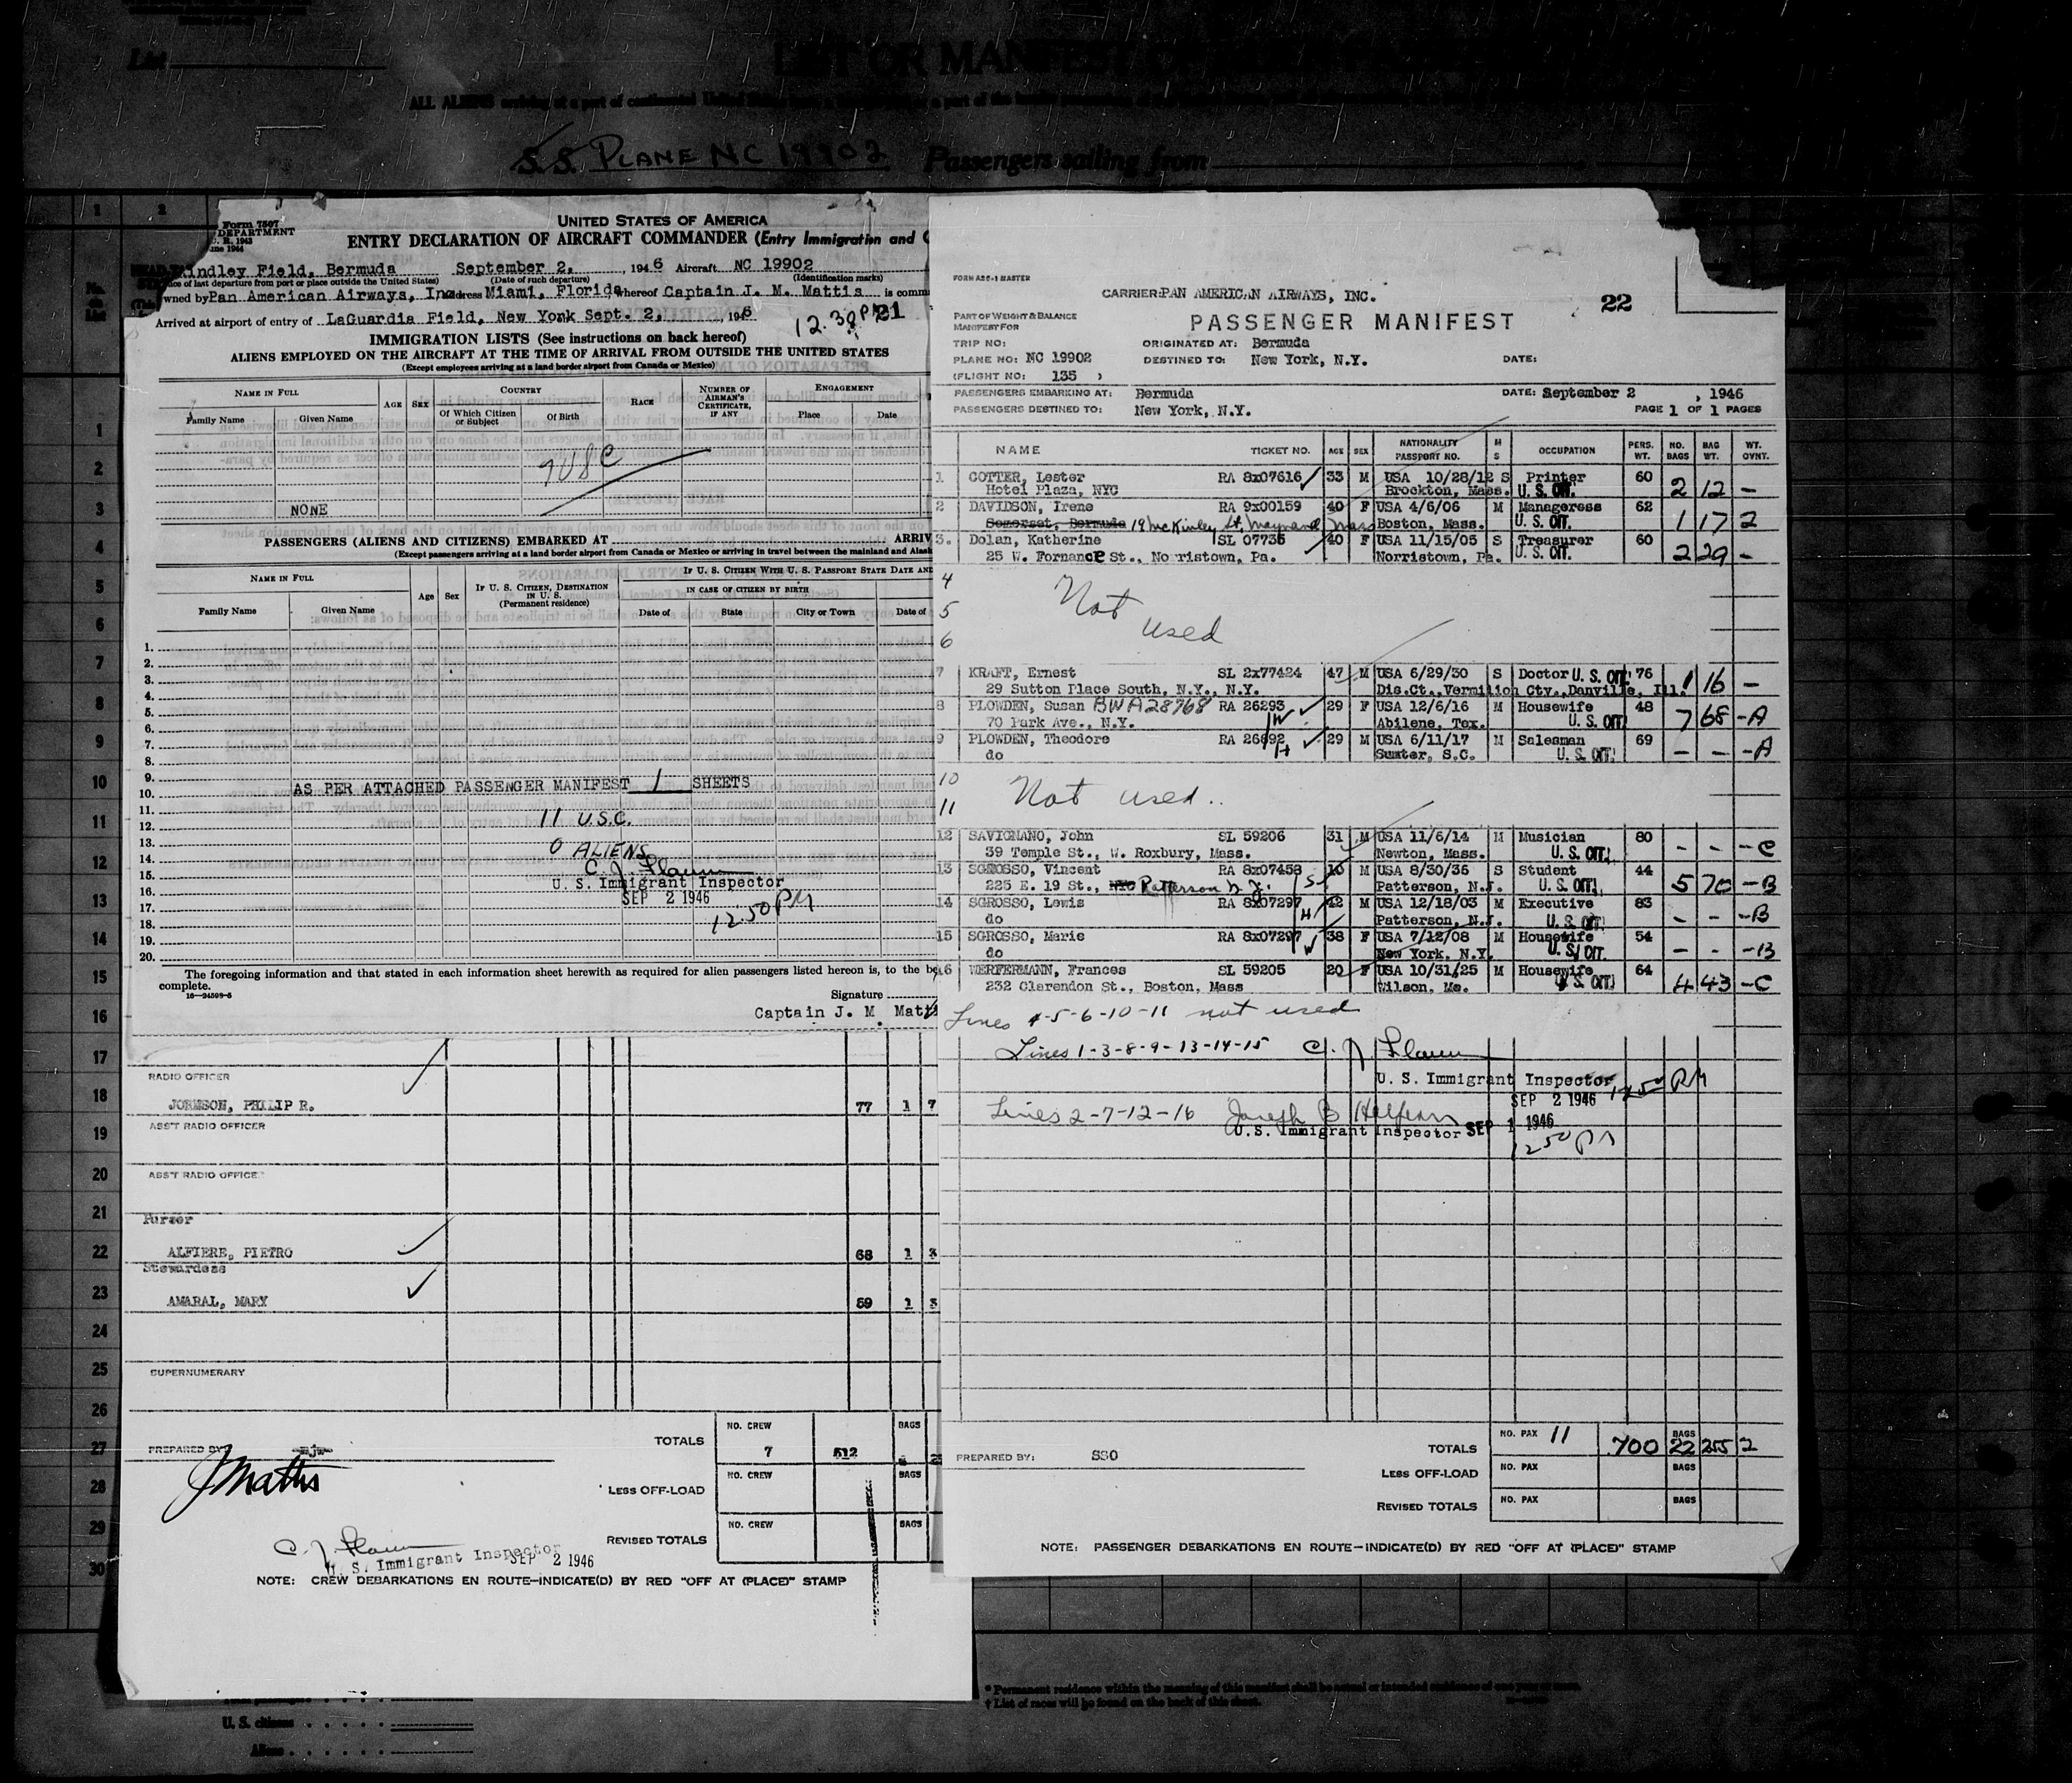 List
LIST OR MANIFEST OF
ALL ALIENS arriving at a port of continental United States
S.S. PLANE NC 19902 Passengers sailing from
1 2
Form 7507
DEPARTMENT
UNITED STATES OF AMERICA
ENTRY DECLARATION OF AIRCRAFT COMMANDER (Entry Immigration and
Kindley Field, Bermuda September 2, , 1946 Aircraft NC 19902
place of last departure from port or place outside the United States) (Date of such departure) (Identification marks)
owned by Pan American Airways, Inc. address Miami, Florida whereof Captain J. M. Mattis is comm
Arrived at airport of entry of LaGuardia Field, New York Sept. 2, 1946 12.30 PM 21
IMMIGRATION LISTS (See instructions on back hereof)
ALIENS EMPLOYED ON THE AIRCRAFT AT THE TIME OF ARRIVAL FROM OUTSIDE THE UNITED STATES
(Except employees arriving at a land border airport from Canada or Mexico)
NAME IN FULL AGE SEX COUNTRY RACE NUMBER OF AIRMAN'S CERTIFICATE, IF ANY ENGAGEMENT
Family Name Given Name Of Which Citizen or Subject Of Birth Place Date
7 USC
NONE
PASSENGERS (ALIENS AND CITIZENS) EMBARKED AT ARRIV
(Except passengers arriving at a land border airport from Canada or Mexico or arriving in travel between the mainland and Alask
NAME IN FULL Age Sex IF U. S. CITIZEN, DESTINATION IN U. S. (Permanent residence) IF U. S. CITIZEN WITH U. S. PASSPORT STATE DATE AND
IN CASE OF CITIZEN BY BIRTH
Family Name Given Name Date of State City or Town Date of
1.
2.
3.
4.
5.
6.
7.
8.
9.
10. AS PER ATTACHED PASSENGER MANIFEST 1 SHEETS
11.
12. 11 U.S.C.
13.
14. 0 ALIENS
15.
U. S. Immigrant Inspector
16. SEP 2 1946
17. 12.50 PM
18.
19.
20.
The foregoing information and that stated in each information sheet herewith as required for alien passengers listed hereon is, to the be
complete.
16—24598-5
Signature
Captain J. M. Matti
RADIO OFFICER
JOHNSON, PHILIP R. 77 1 7
ASS'T RADIO OFFICER
ASS'T RADIO OFFICER
Purser
ALFIERE, PIETRO 68 1 3
Stewardess
AMARAL, MARY 59 1 3
SUPERNUMERARY
PREPARED BY:
TOTALS NO. CREW 7 512 BAGS
LESS OFF-LOAD NO. CREW BAGS
REVISED TOTALS NO. CREW BAGS
J Mattis
U. S. Immigrant Inspector SEP 2 1946
NOTE: CREW DEBARKATIONS EN ROUTE—INDICATE(D) BY RED "OFF AT (PLACE)" STAMP
U. S. citizens
Aliens
1
2
3
4
5
6
7
8
9
10
11
12
13
14
15
16
17
18
19
20
21
22
23
24
25
26
27
28
29
30
FORM ASC-1 MASTER
CARRIER: PAN AMERICAN AIRWAYS, INC. 22
PART OF WEIGHT & BALANCE
MANIFEST FOR
PASSENGER MANIFEST
TRIP NO: ORIGINATED AT: Bermuda
PLANE NO: NC 19902 DESTINED TO: New York, N.Y. DATE:
(FLIGHT NO: 135 )
PASSENGERS EMBARKING AT: Bermuda DATE: September 2 , 1946
PASSENGERS DESTINED TO: New York, N.Y. PAGE 1 OF 1 PAGES
NAME TICKET NO. AGE SEX NATIONALITY PASSPORT NO. M S OCCUPATION PERS. WT. NO. BAGS BAG WT. WT. OVNT.
1 COTTER, Lester RA 8x07616 33 M USA 10/28/12 S Printer 60
Hotel Plaza, NYC Brockton, Mass. U. S. CIT. 2 12 –
2 DAVIDSON, Irene RA 9x00159 40 F USA 4/6/06 M Manageress 62
Somerset, Bermuda 19 McKinley St, Maynard Mass Boston, Mass. U. S. CIT. 1 17 2
3. Dolan, Katherine SL 07735 40 F USA 11/15/05 S Treasurer 60
25 W. Fornance St., Norristown, Pa. Norristown, Pa. U. S. CIT. 2 29 –
4
5 Not used
6
7 KRAFT, Ernest SL 2x77424 47 M USA 6/29/30 S Doctor U. S. CIT. 76 1 16 –
29 Sutton Place South, N.Y., N.Y. Dis.Ct., Vermilion Cty., Danville, Ill.
8 PLOWDEN, Susan BWA28768 RA 26293 29 F USA 12/6/16 M Housewife 48
70 Park Ave., N.Y. W Abilene, Tex. U. S. CIT. 7 68 –A
9 PLOWDEN, Theodore RA 26892 29 M USA 6/11/17 M Salesman 69
do H Sumter, S.C. U. S. CIT. – – –A
10
11 Not used..
12 SAVIGNANO, John SL 59206 31 M USA 11/6/14 M Musician 80
39 Temple St., W. Roxbury, Mass. Newton, Mass. U. S. CIT. – – –C
13 SGROSSO, Vincent RA 8x07458 10 M USA 8/30/36 S Student 44
225 E. 19 St., NYC Patterson N.J. S Patterson, N.J. U. S. CIT. 5 70 –B
14 SGROSSO, Lewis RA 8x07297 42 M USA 12/18/03 M Executive 83
do H Patterson, N.J. U. S. CIT. – – –B
15 SGROSSO, Marie RA 8x07297 38 F USA 7/12/08 M Housewife 54
do W New York, N.Y. U. S. CIT. – – –B
16 WERFERMANN, Frances SL 59205 20 F USA 10/31/25 M Housewife 64
232 Clarendon St., Boston, Mass Wilson, Me. U. S. CIT. 4 43 –C
Lines 4-5-6-10-11 not used
Lines 1-3-8-9-13-14-15
U. S. Immigrant Inspector 12.50 PM
SEP 2 1946
Lines 2-7-12-16 Joseph B
U.S. Immigrant Inspector SEP 1 1946
12 50 PM
PREPARED BY: SSO
TOTALS NO. PAX 11 700 BAGS 22 255 2
LESS OFF-LOAD NO. PAX BAGS
REVISED TOTALS NO. PAX BAGS
NOTE: PASSENGER DEBARKATIONS EN ROUTE—INDICATE(D) BY RED "OFF AT (PLACE)" STAMP
* Permanent residence within the meaning of this manifest shall be actual or intended residence of one year or more.
† List of races will be found on the back of this sheet.